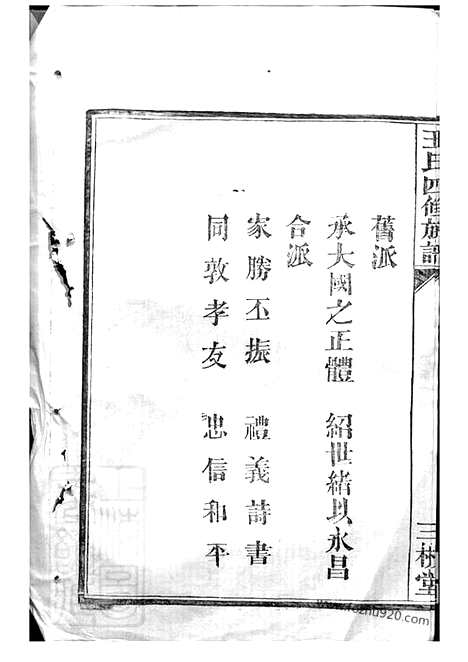 王氏四修族譜
舊派
承大國之正體 紹世緒以永昌
合派
家勝丕振 禮義詩書
同敦孝友 忠信和平
三槐堂